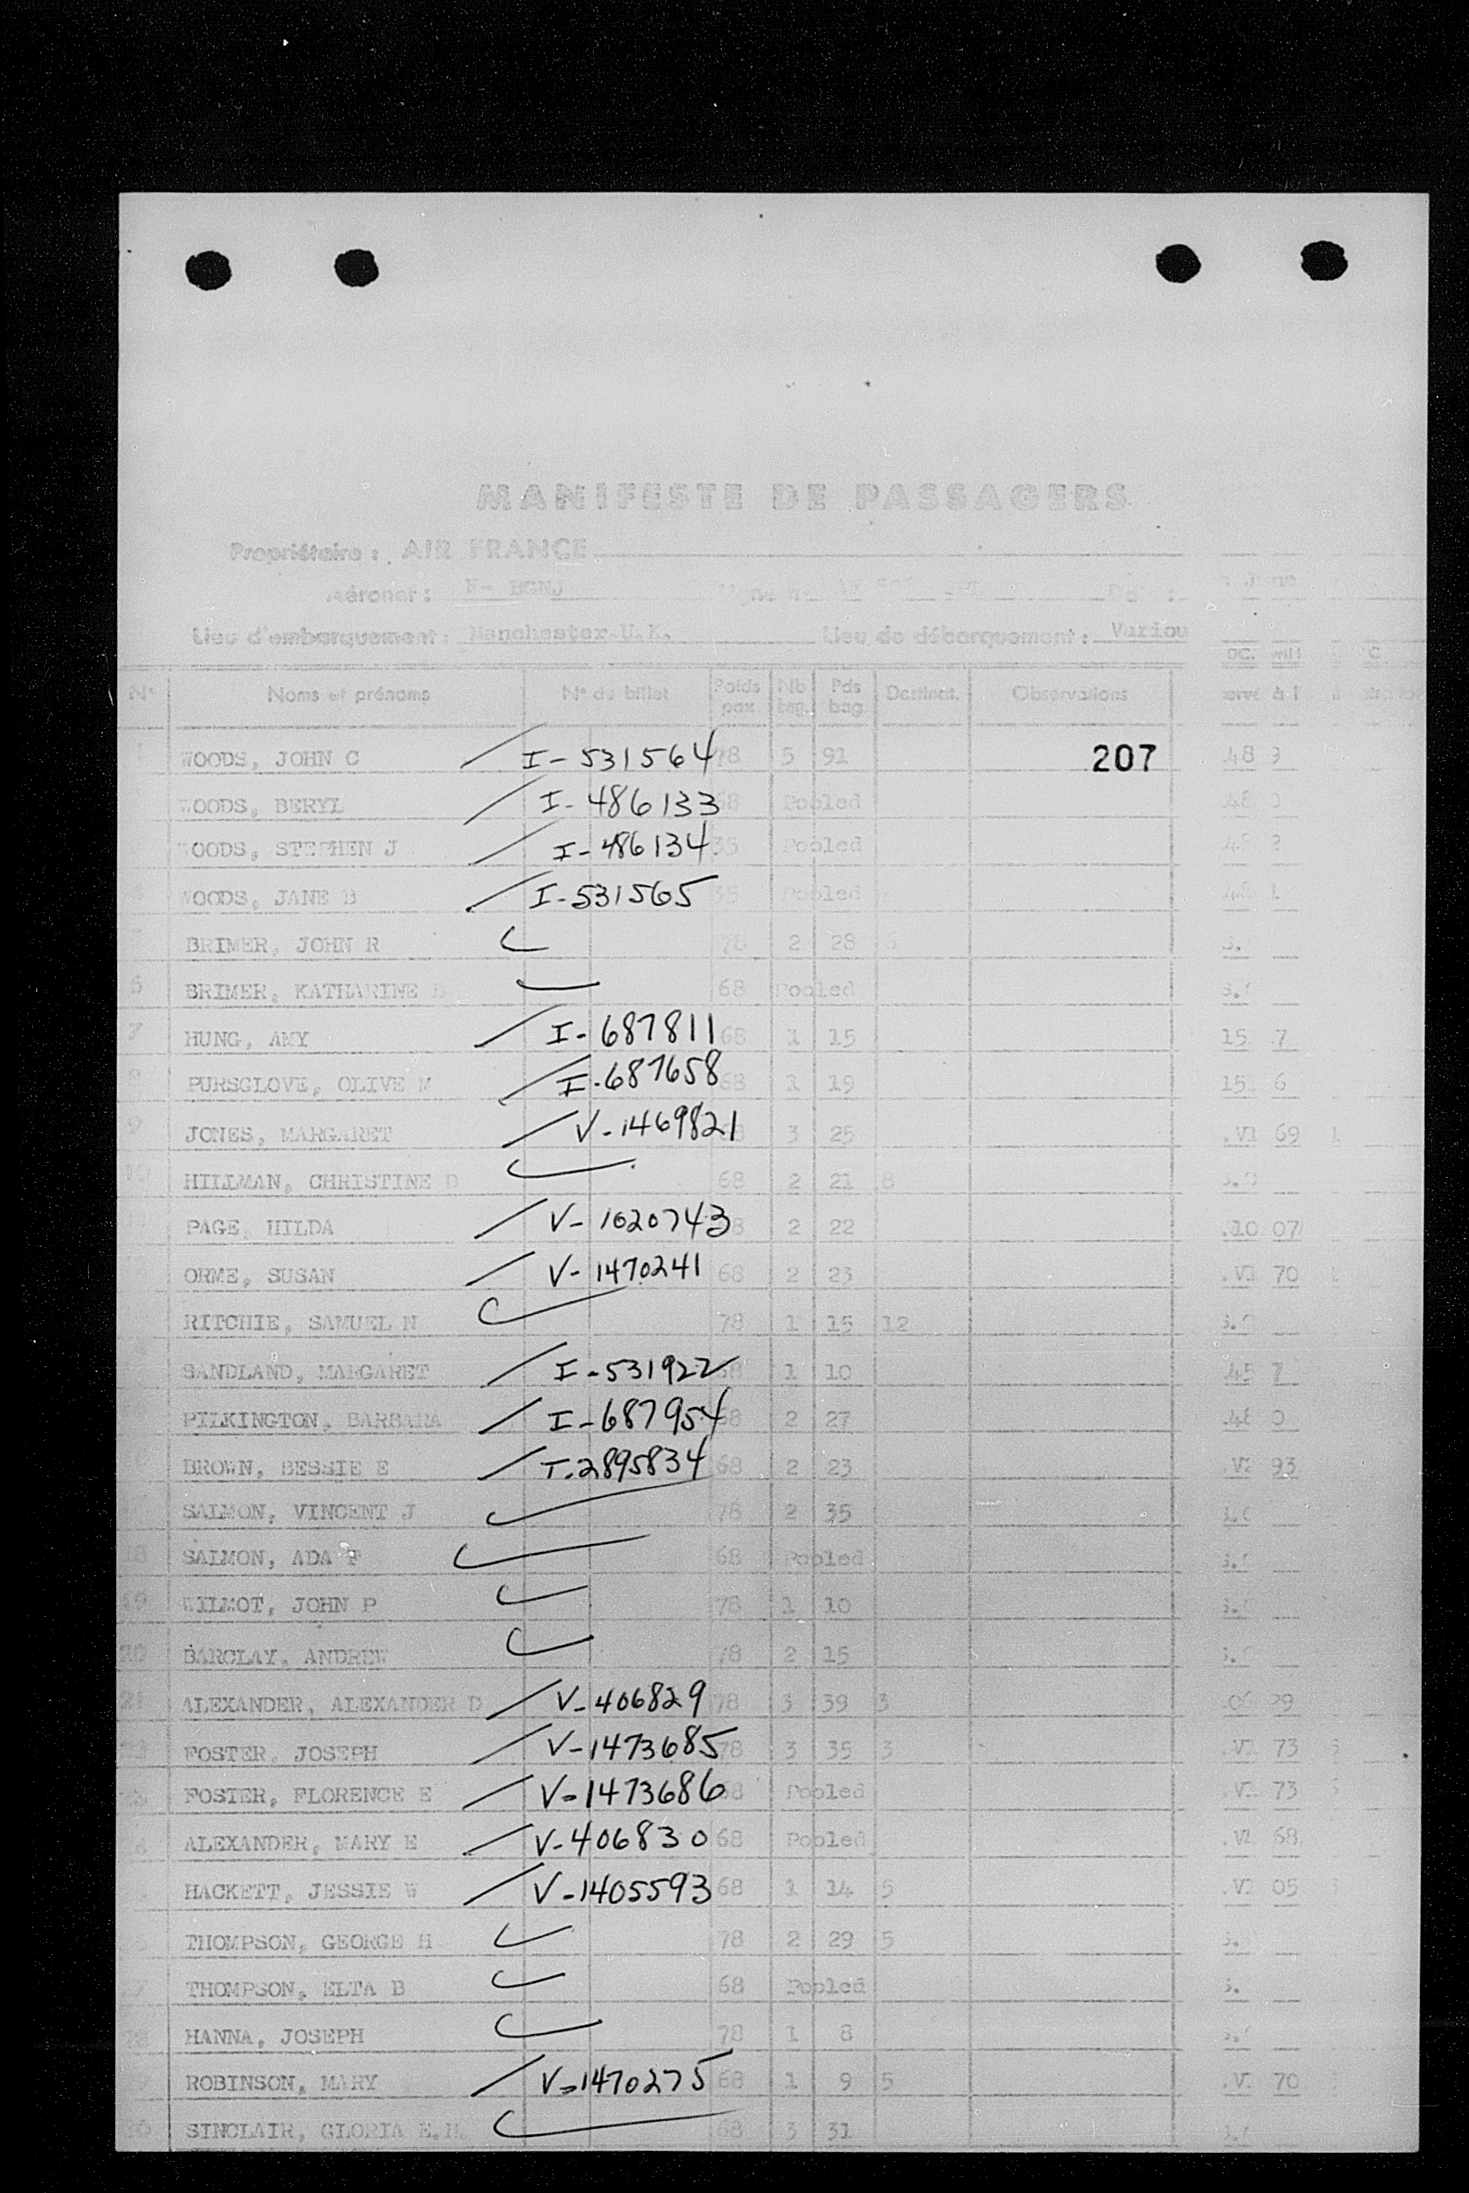 MANIFESTE DE PASSAGERS
Propriétaire : AIR FRANCE
Aéronef :
Lieu d'embarquement : Manchester U.K. Lieu de débarquement : Variou
N° Noms et prénoms N° de billet Poids pax. Nb bag. Pds bag. Destinat. Observations
WOODS, JOHN C I-531564 78 5 91 207
WOODS, BERYL I-486133 68 Pooled
WOODS, STEPHEN J I-486134 35 Pooled
WOODS, JANE B I-531565 35 Pooled
BRIMER, JOHN R 78 2 28
6 BRIMER, KATHARINE 68 Pooled
7 HUNG, AMY I-687811 68 1 15 15 7
8 PURSGLOVE, OLIVE M I-687658 68 1 19 15 6
9 JONES, MARGARET V-1469821 3 25 .VI 69
10 HILLMAN, CHRISTINE D 68 2 21 8
PAGE, HILDA V-1020743 2 22 .10 07
ORME, SUSAN V-1470241 68 2 23 70
RITCHIE, SAMUEL N 78 1 15 12
SANDLAND, MARGARET I-531922 1 10
PILKINGTON, BARBARA I-687954 68 2 27
BROWN, BESSIE E T-2895834 68 2 23 93
SALMON, VINCENT J 78 2 35
18 SALMON, ADA F 68 Pooled
19 WILMOT, JOHN P 78 1 10
20 BARCLAY, ANDREW 78 2 15
21 ALEXANDER, ALEXANDER D V-406829 78 3 39 3
FOSTER, JOSEPH V-1473685 78 3 35 3 73
FOSTER, FLORENCE E V-1473686 68 Pooled 73
ALEXANDER, MARY E V-406830 68 Pooled 68
HACKETT, JESSIE W V-1405593 68 1 14 5 05
THOMPSON, GEORGE H 78 2 29 5
THOMPSON, ELTA B 68 Pooled
HANNA, JOSEPH 78 1 8
ROBINSON, MARY V-1470275 68 1 9 5 70
SINCLAIR, GLORIA E.H. 68 3 31